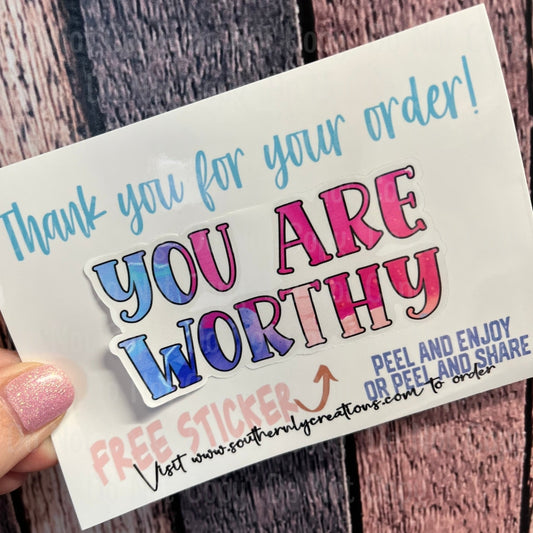 Thank you for your order!
YOU ARE
WORTHY
PEEL AND ENJOY
OR PEEL AND SHARE
FREE STICKER
Visit www.southernlycreations.com to order